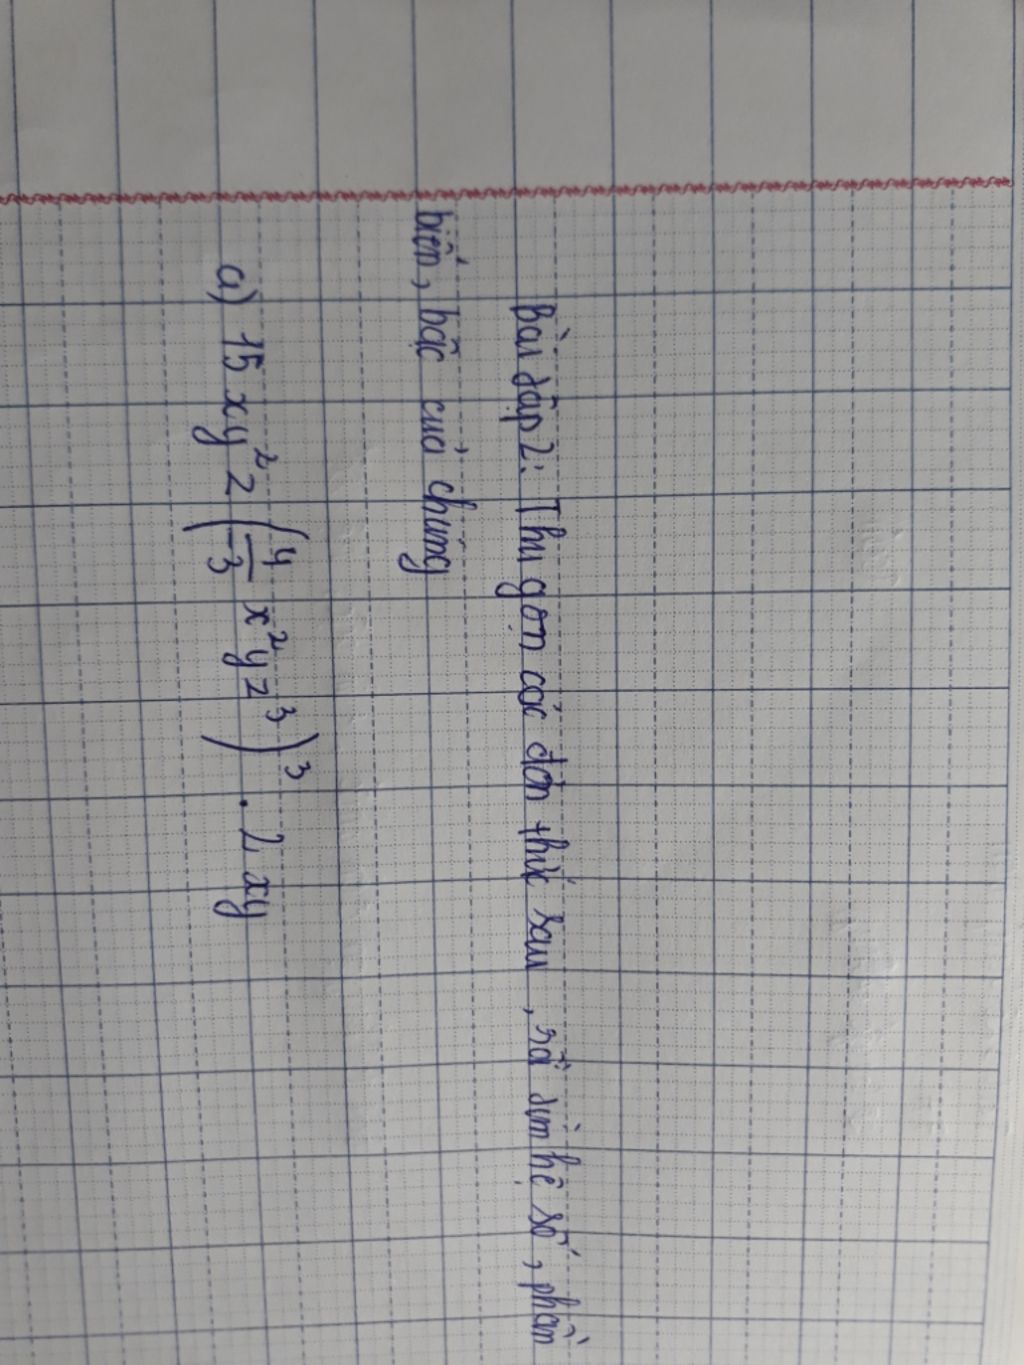 Bài tập 2: Thu gọn các đơn thức sau, rồi tìm hệ số, phần
biến, bậc của chúng
a) 15 xy² z (4/3 x² y z³)³ . 2 xy